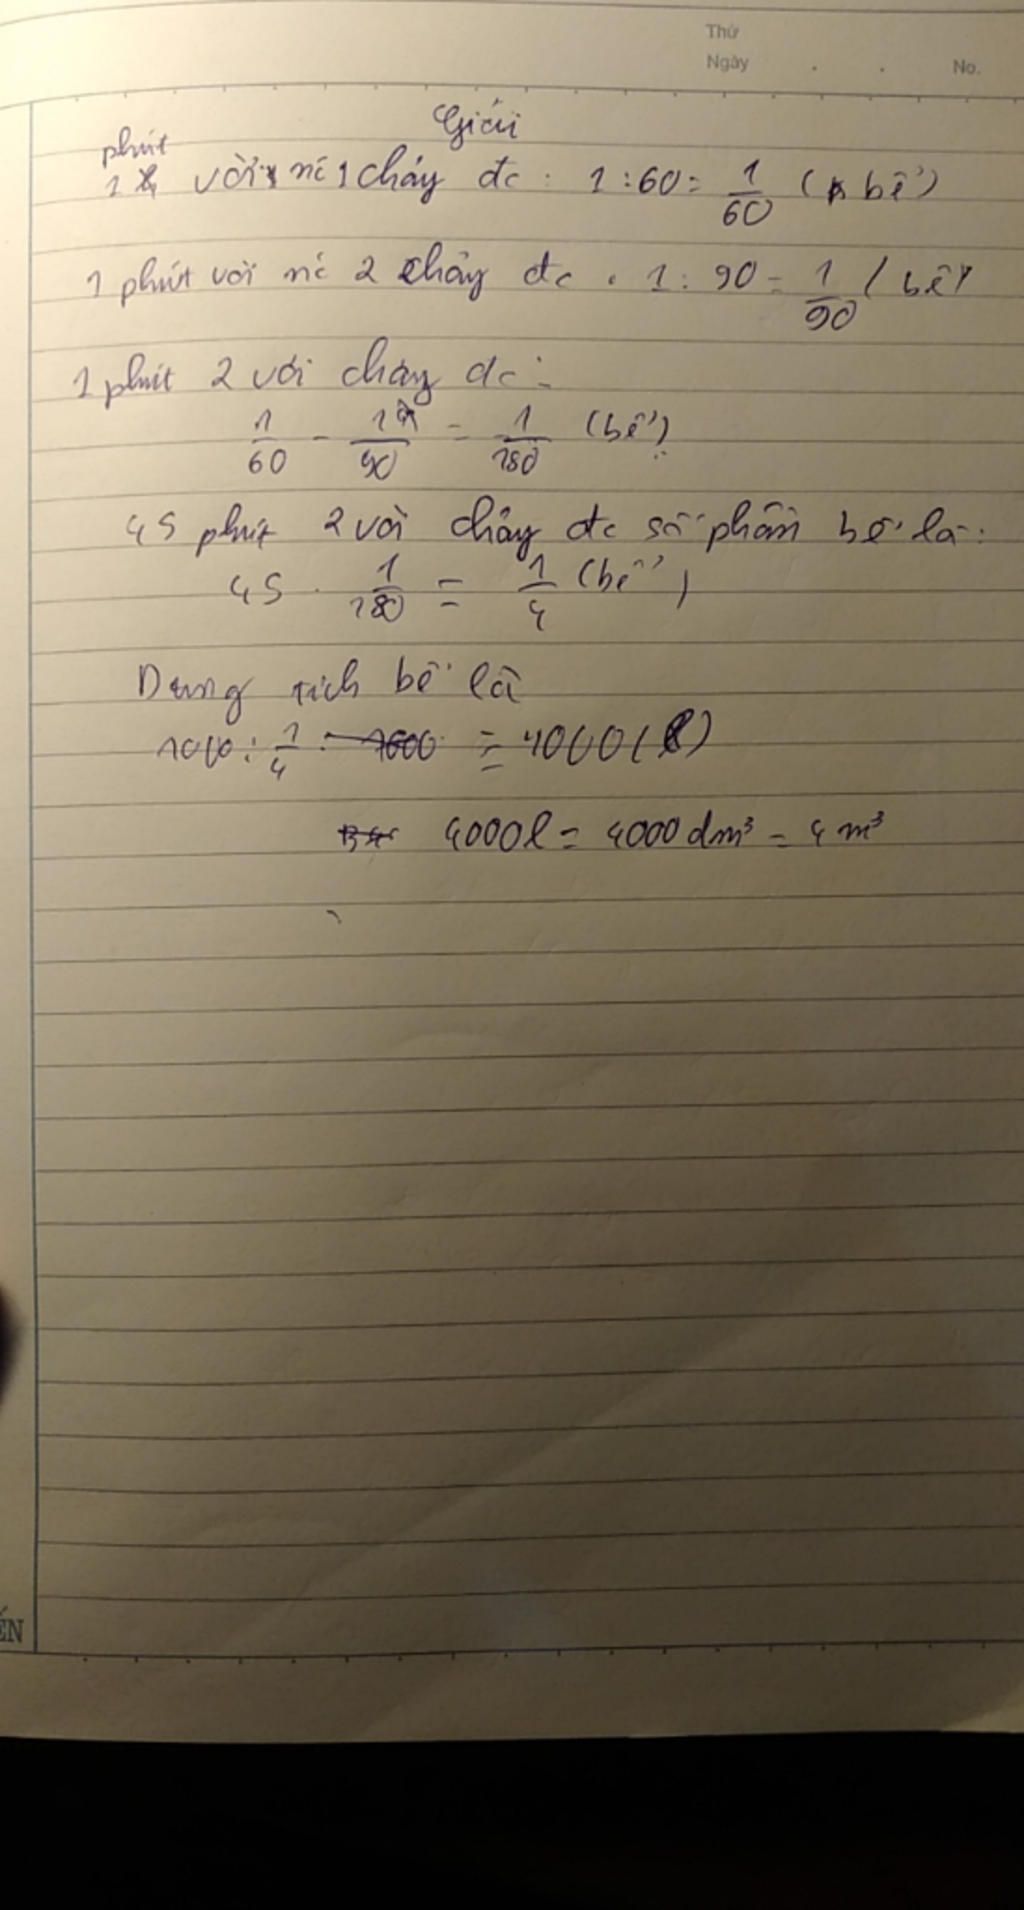 Thứ
Ngày . . No.
Giải
phút
1 vòi nc 1 chảy đc : 1 : 60 = 1/60 (bể)
1 phút vòi nc 2 chảy đc . 1 : 90 = 1/90 (bể)
1 phút 2 vòi chảy đc :
1/60 - 1/90 = 1/180 (bể)
45 phút 2 vòi chảy đc số phần bể là :
45 . 1/180 = 1/4 (bể)
Dung tích bể là
1000 : 1/4 = 4000 (l)
4000l = 4000 dm³ = 4 m³
ẾN